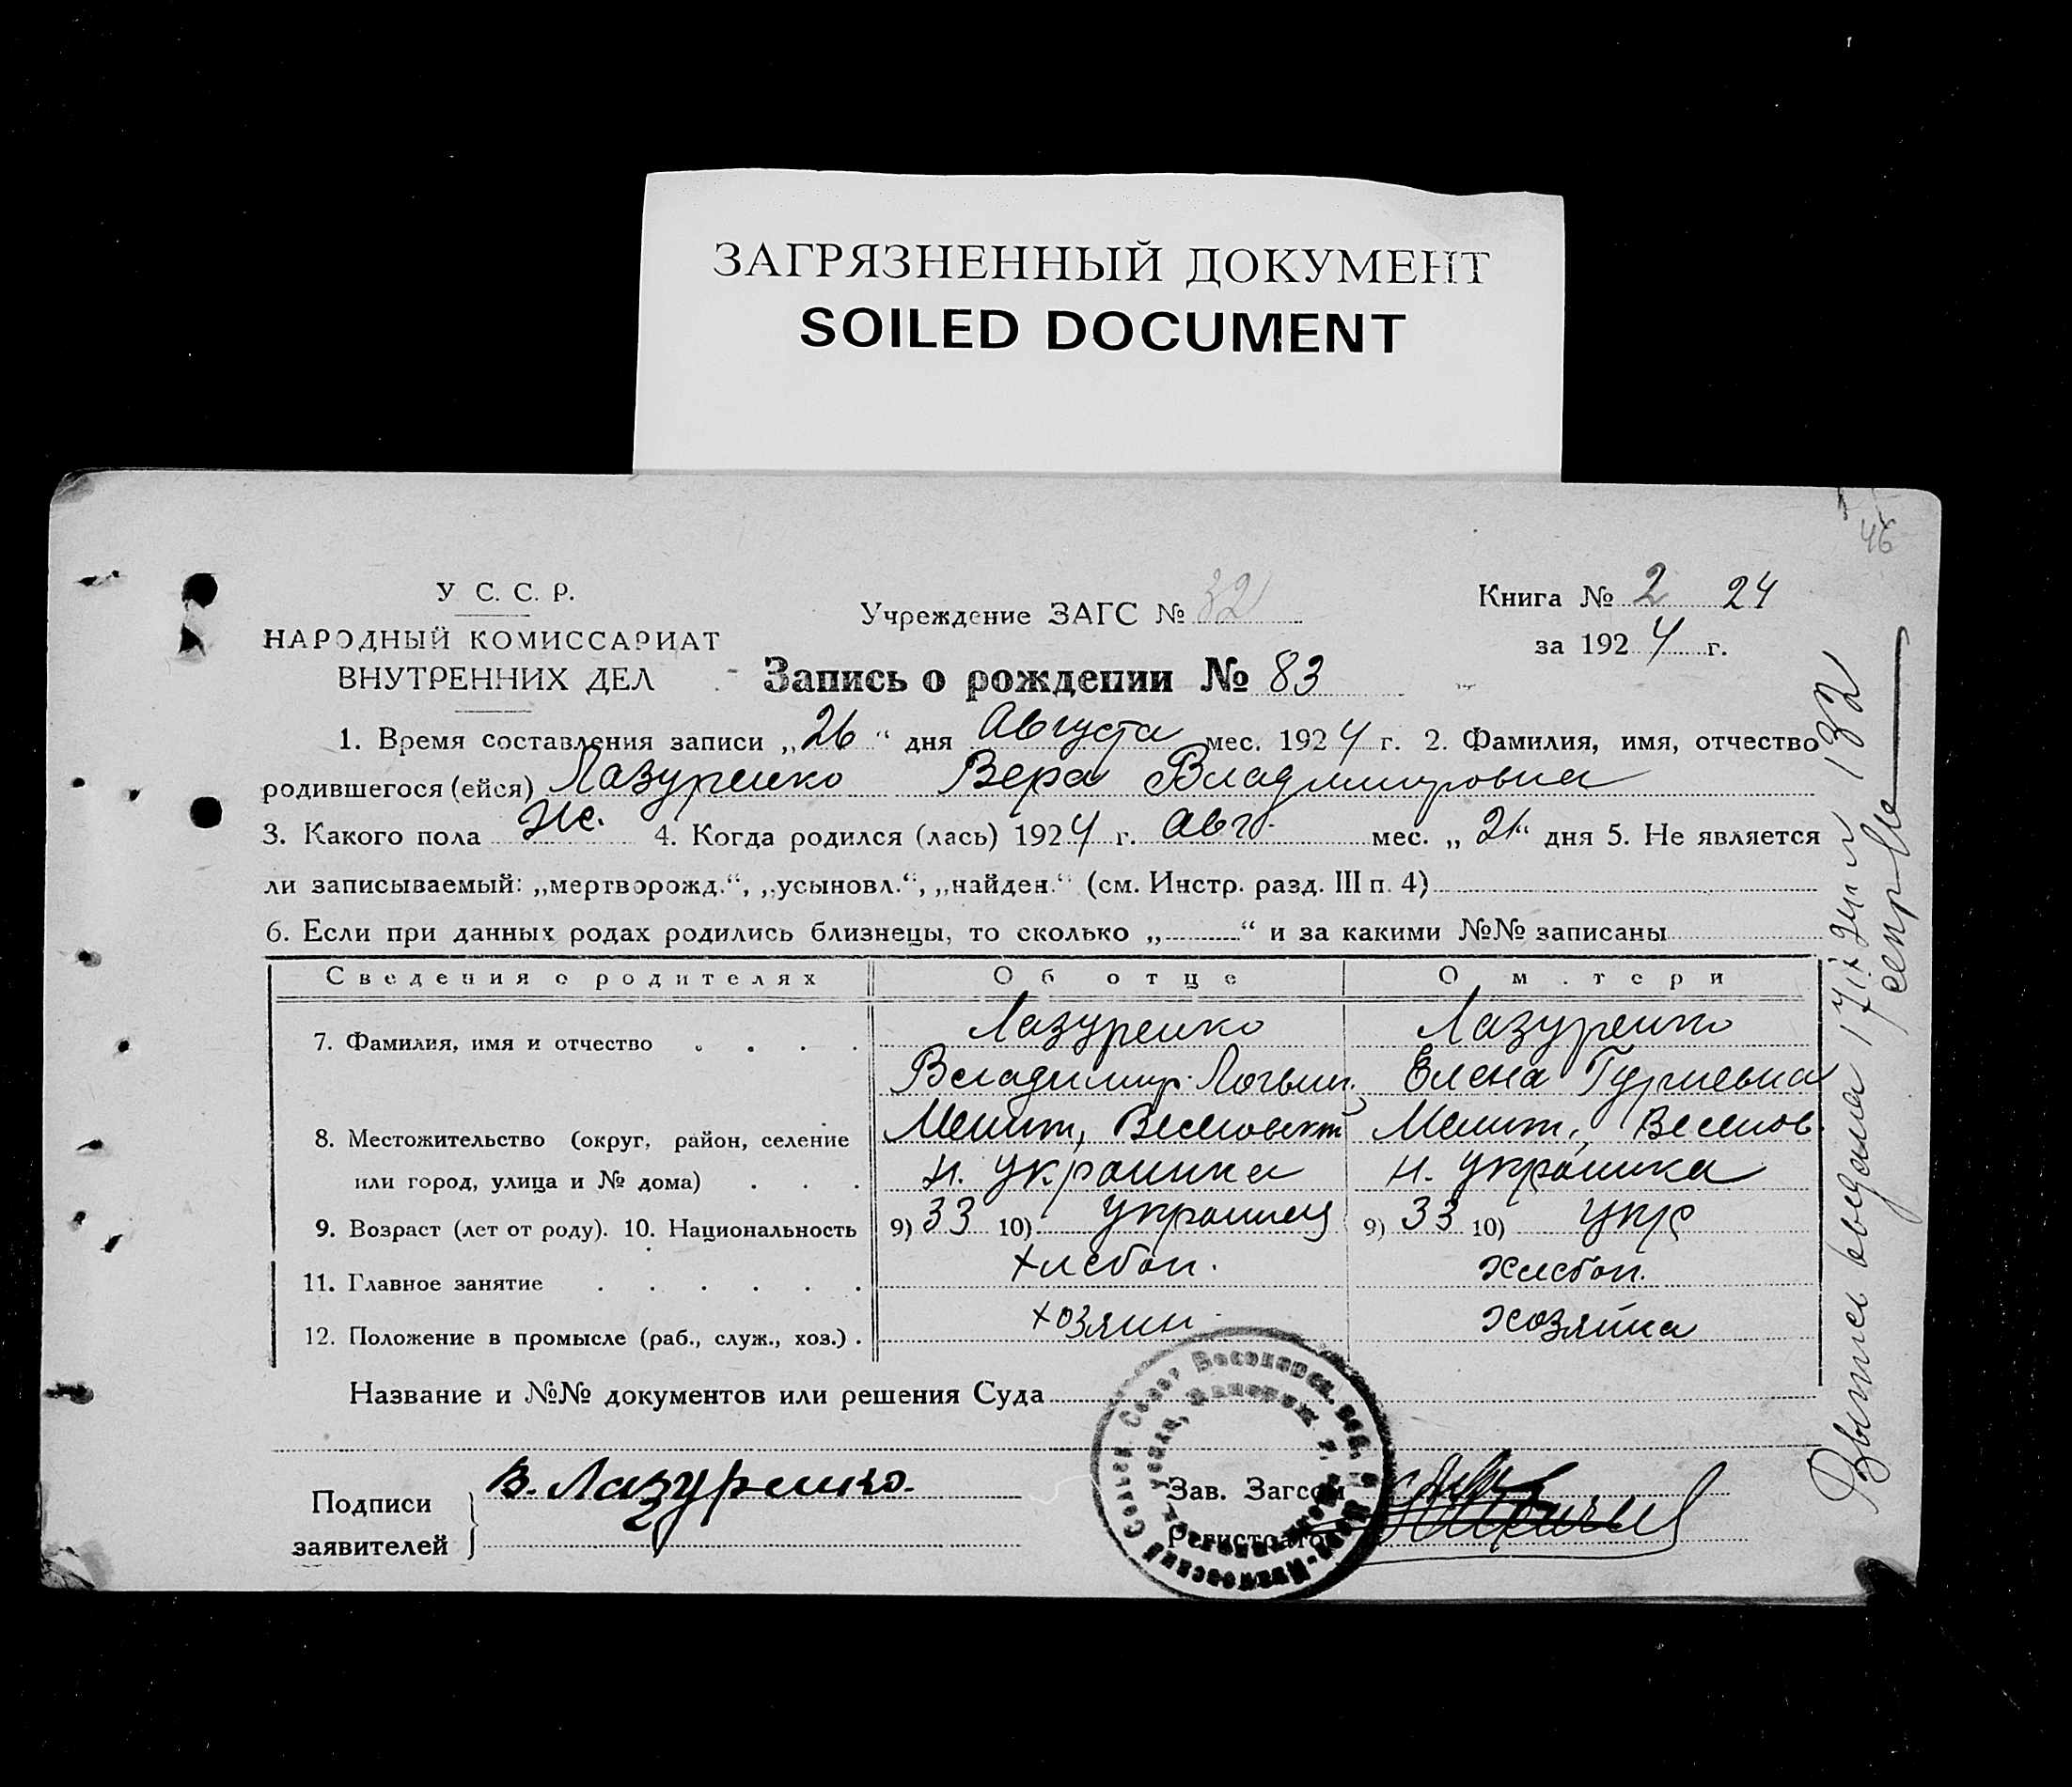 ЗАГРЯЗНЕННЫЙ ДОКУМЕНТ
SOILED DOCUMENT
46
У С. С. Р.
НАРОДНЫЙ КОМИССАРИАТ
ВНУТРЕННИХ ДЕЛ
Учреждение ЗАГС № 32
Книга № 2 24
за 1924 г.
Запись о рождении № 83
1. Время составления записи „26“ дня Августа мес. 1924 г. 2. Фамилия, имя, отчество
родившегося (ейся) Лазуренко Вера Владимировна
3. Какого пола Ж. 4. Когда родился (лась) 1924 г. Авг. мес. „21“ дня 5. Не является
ли записываемый: „мертворожд.“, „усыновл.“, „найден.“ (см. Инстр. разд. III п. 4)
6. Если при данных родах родились близнецы, то сколько „ “ и за какими №№ записаны
Сведения о родителях Об отце О м.тери
7. Фамилия, имя и отчество Лазуренко Лазуренко
Владимир Логвин. Елена Гуриевна
8. Местожительство (округ, район, селение Мелит, Веселовск Мелит, Веселов.
или город, улица и № дома) н. Украинка н. Украинка
9. Возраст (лет от роду). 10. Национальность 9) 33 10) Украинец 9) 33 10) Укр
11. Главное занятие Хлебоп. Хлебоп.
12. Положение в промысле (раб., служ., хоз.) Хозяин Хозяйка
Название и №№ документов или решения Суда
Подписи заявителей В. Лазуренко.
Зав. Загсом
Регистратор
Выпись выдана 17